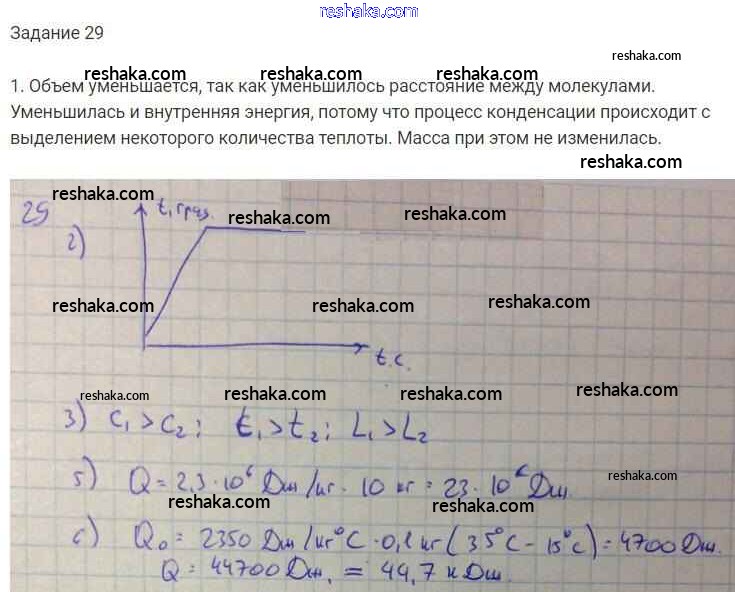 reshaka.com
Задание 29
reshaka.com
reshaka.com reshaka.com reshaka.com
1. Объем уменьшается, так как уменьшилось расстояние между молекулами.
Уменьшилась и внутренняя энергия, потому что процесс конденсации происходит с
выделением некоторого количества теплоты. Масса при этом не изменилась.
reshaka.com
29 reshaka.com t, град. reshaka.com reshaka.com
2)
reshaka.com reshaka.com reshaka.com
t, с.
reshaka.com reshaka.com reshaka.com reshaka.com
3) c₁ > c₂; t₁ > t₂; L₁ > L₂
5) Q = 2,3·10⁶ Дж/кг · 10 кг = 23·10⁶ Дж. reshaka.com
reshaka.com reshaka.com
6) Q₀ = 2350 Дж/кг°C · 0,1 кг (35°C - 15°C) = 4700 Дж.
Q = 44700 Дж. = 44,7 кДж.